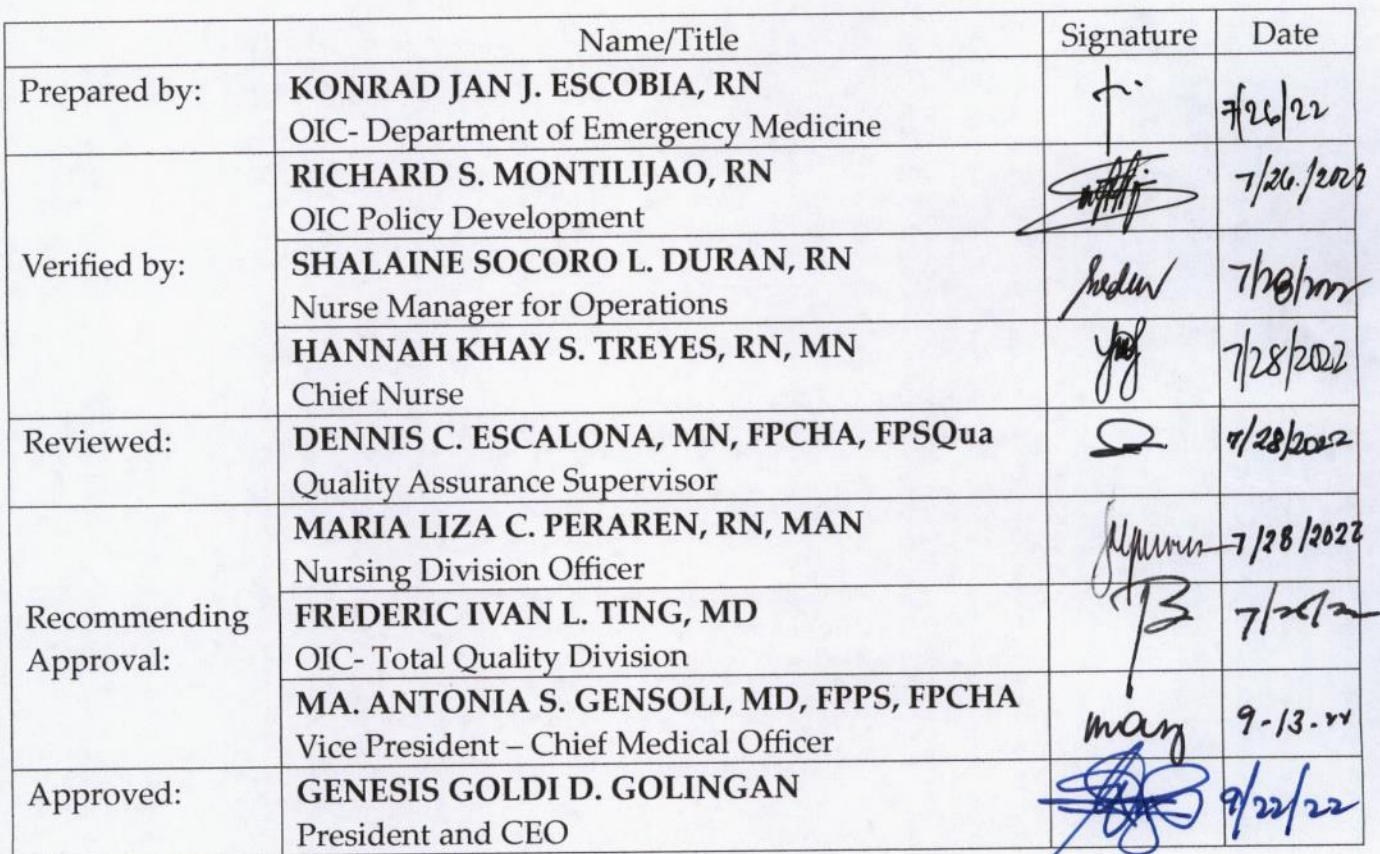 Name/Title Signature Date
Prepared by: KONRAD JAN J. ESCOBIA, RN
OIC- Department of Emergency Medicine 7/26/22
RICHARD S. MONTILIJAO, RN
OIC Policy Development 7/26/2022
Verified by: SHALAINE SOCORO L. DURAN, RN
Nurse Manager for Operations
HANNAH KHAY S. TREYES, RN, MN
Chief Nurse 7/28/2022
Reviewed: DENNIS C. ESCALONA, MN, FPCHA, FPSQua 7/28/2022
Quality Assurance Supervisor
MARIA LIZA C. PERAREN, RN, MAN
Nursing Division Officer 7/28/2022
Recommending FREDERIC IVAN L. TING, MD
Approval: OIC- Total Quality Division
MA. ANTONIA S. GENSOLI, MD, FPPS, FPCHA
Vice President – Chief Medical Officer
Approved: GENESIS GOLDI D. GOLINGAN
President and CEO 9/22/22